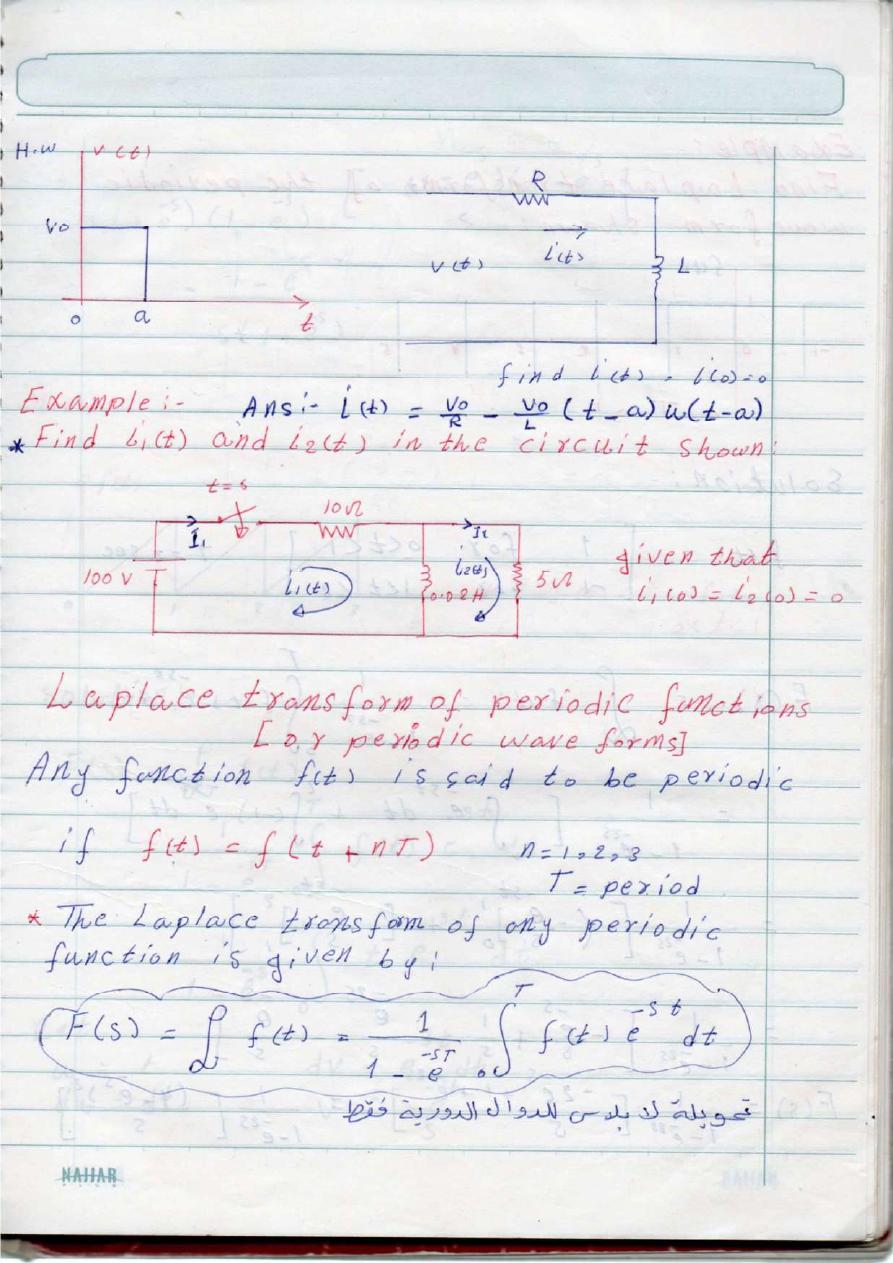 H.w
v(t)
v0
0
a
t
R
v(t)
i(t)
L
find i(t) - i(0)=0
Example:-
Ans:- i(t) = V0/R - V0/L (t-a) u(t-a)
* Find i1(t) and i2(t) in the circuit shown:
t=s
10Ω
I1
I2
100 V
i1(t)
i2(t)
0.02H
5Ω
given that
i1(0) = i2(0) = 0
Laplace transform of periodic functions
[or periodic wave forms]
Any function f(t) is said to be periodic
if f(t) = f(t + nT) n=1,2,3
T = period
* The Laplace transform of any periodic
function is given by:
F(s) = ℒ f(t) = 1/(1 - e^-sT) ∫₀^T f(t) e^-st dt
تحويلة لا بلاس للدوال الدورية فقط
NAJJAR